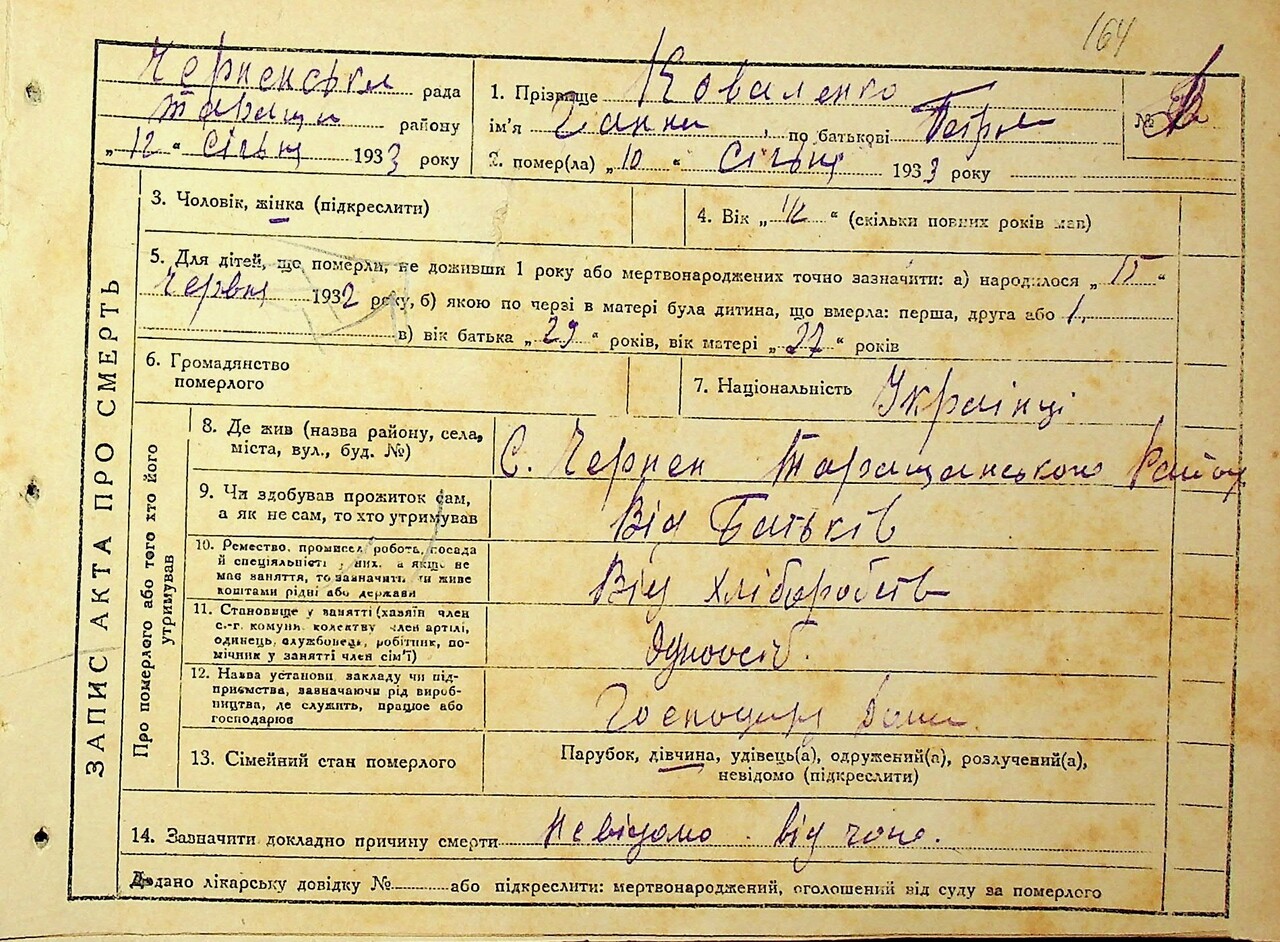 164
Черненська рада
Таращи району
„12“ Січня 1933 року
1. Прізвище Коваленко
ім'я Ганна, по батькові Петров
№ 2
2. помер(ла) „10“ Січня 1933 року
3. Чоловік, жінка (підкреслити)
4. Вік „1/2“ (скільки повних років мав)
5. Для дітей, що померли, не доживши 1 року або мертвонароджених точно зазначити: а) народилося „15“
Червня 1932 року, б) якою по черзі в матері була дитина, що вмерла: перша, друга або 1,
в) вік батька „29“ років, вік матері „27“ років
6. Громадянство
померлого
7. Національність Українці
ЗАПИС АКТА ПРО СМЕРТЬ
Про померлого або того хто його
утримував
8. Де жив (назва району, села,
міста, вул., буд. №)
С. Чернен Таращанського Району
9. Чи здобував прожиток сам,
а як не сам, то хто утримував
Від Батьків
10. Ремество, промисел робота, посада
й спеціяльність у них, а якщо не
має заняття, то зазначить чи живе
коштами рідні або держави
Від хліборобств
11. Становище у занятті (хазяїн член
с.-г. комуни колектву член артілі,
одинець, службовець, робітник, по-
мічник у занятті член сім'ї)
Одноосіб.
12. Назва установи закладу чи під-
приємства, зазначаючи рід вироб-
ництва, де служить, працює або
господарює
Господар
13. Сімейний стан померлого
Парубок, дівчина, удівець(а), одружений(а), розлучений(а),
невідомо (підкреслити)
14. Зазначити докладно причину смерти Невідомо від чого.
Додано лікарську довідку № або підкреслити: мертвонароджений, оголошений від суду за померлого